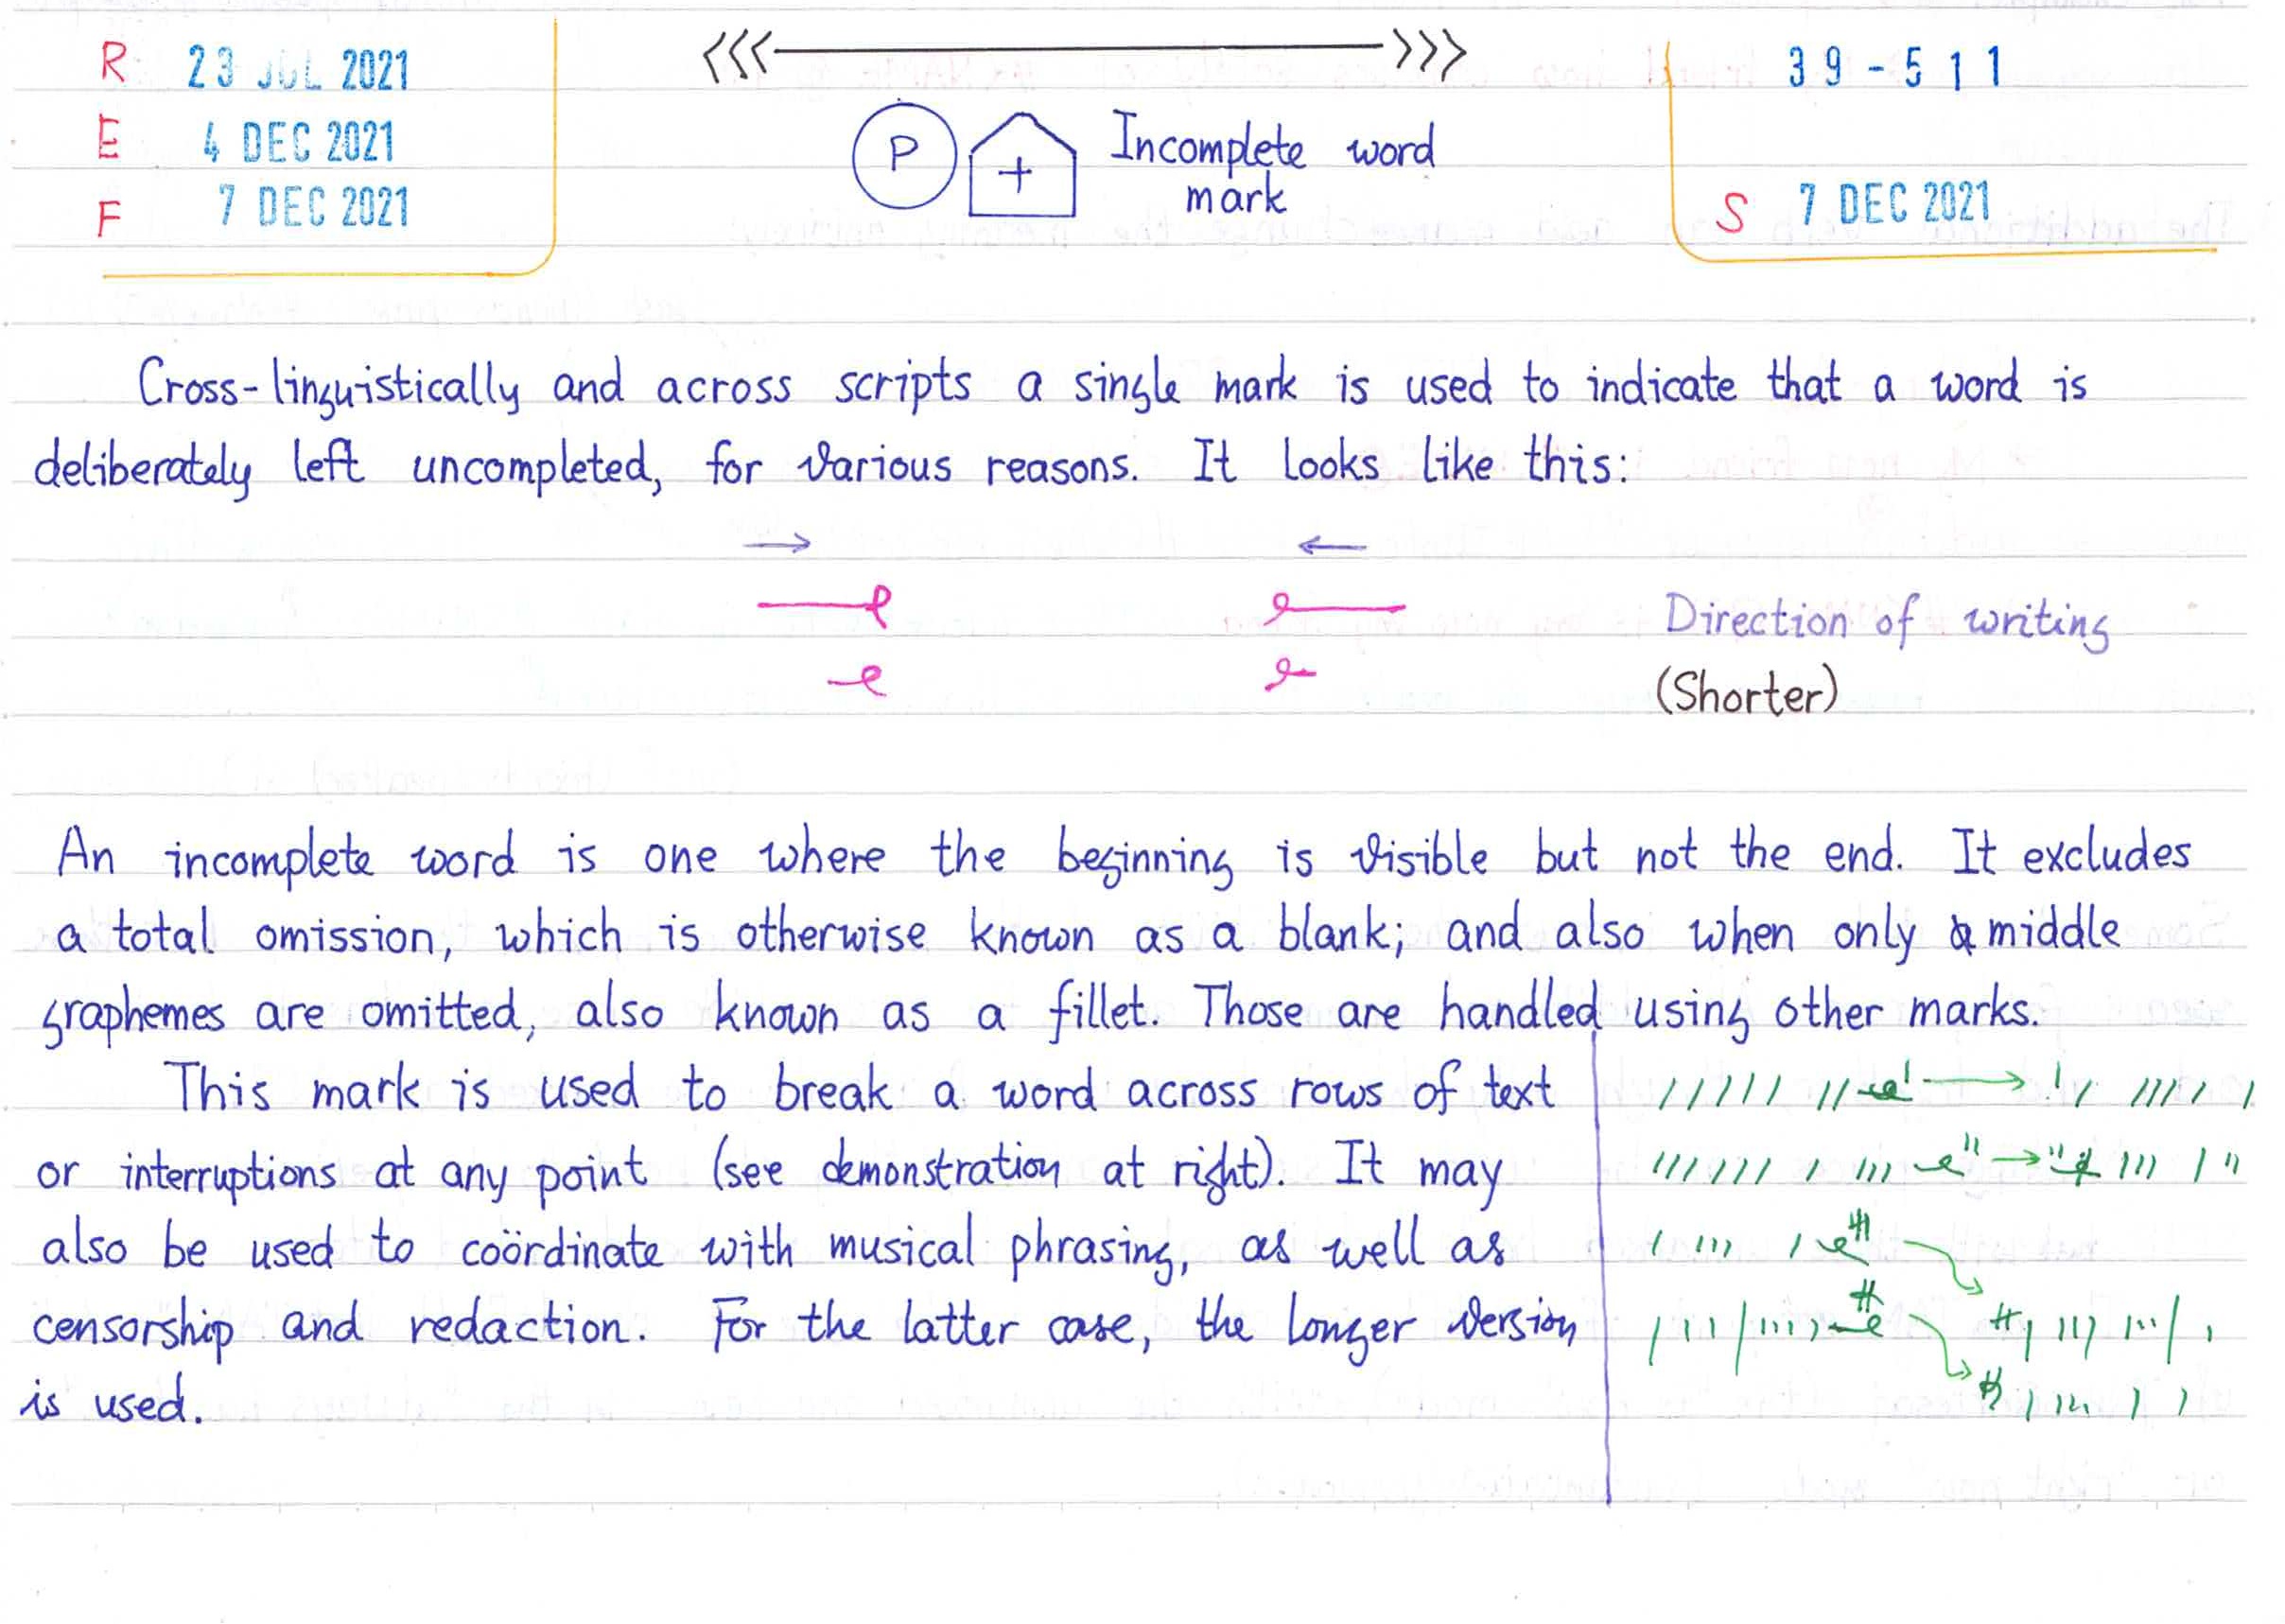 R 23 JUL 2021
E 4 DEC 2021
F 7 DEC 2021
39-511
S 7 DEC 2021
P + Incomplete word
mark
Cross-linguistically and across scripts a single mark is used to indicate that a word is
deliberately left uncompleted, for various reasons. It looks like this:
Direction of writing
(Shorter)
An incomplete word is one where the beginning is visible but not the end. It excludes
a total omission, which is otherwise known as a blank; and also when only middle
graphemes are omitted, also known as a fillet. Those are handled using other marks.
This mark is used to break a word across rows of text
or interruptions at any point (see demonstration at right). It may
also be used to coördinate with musical phrasing, as well as
censorship and redaction. For the latter case, the longer version
is used.